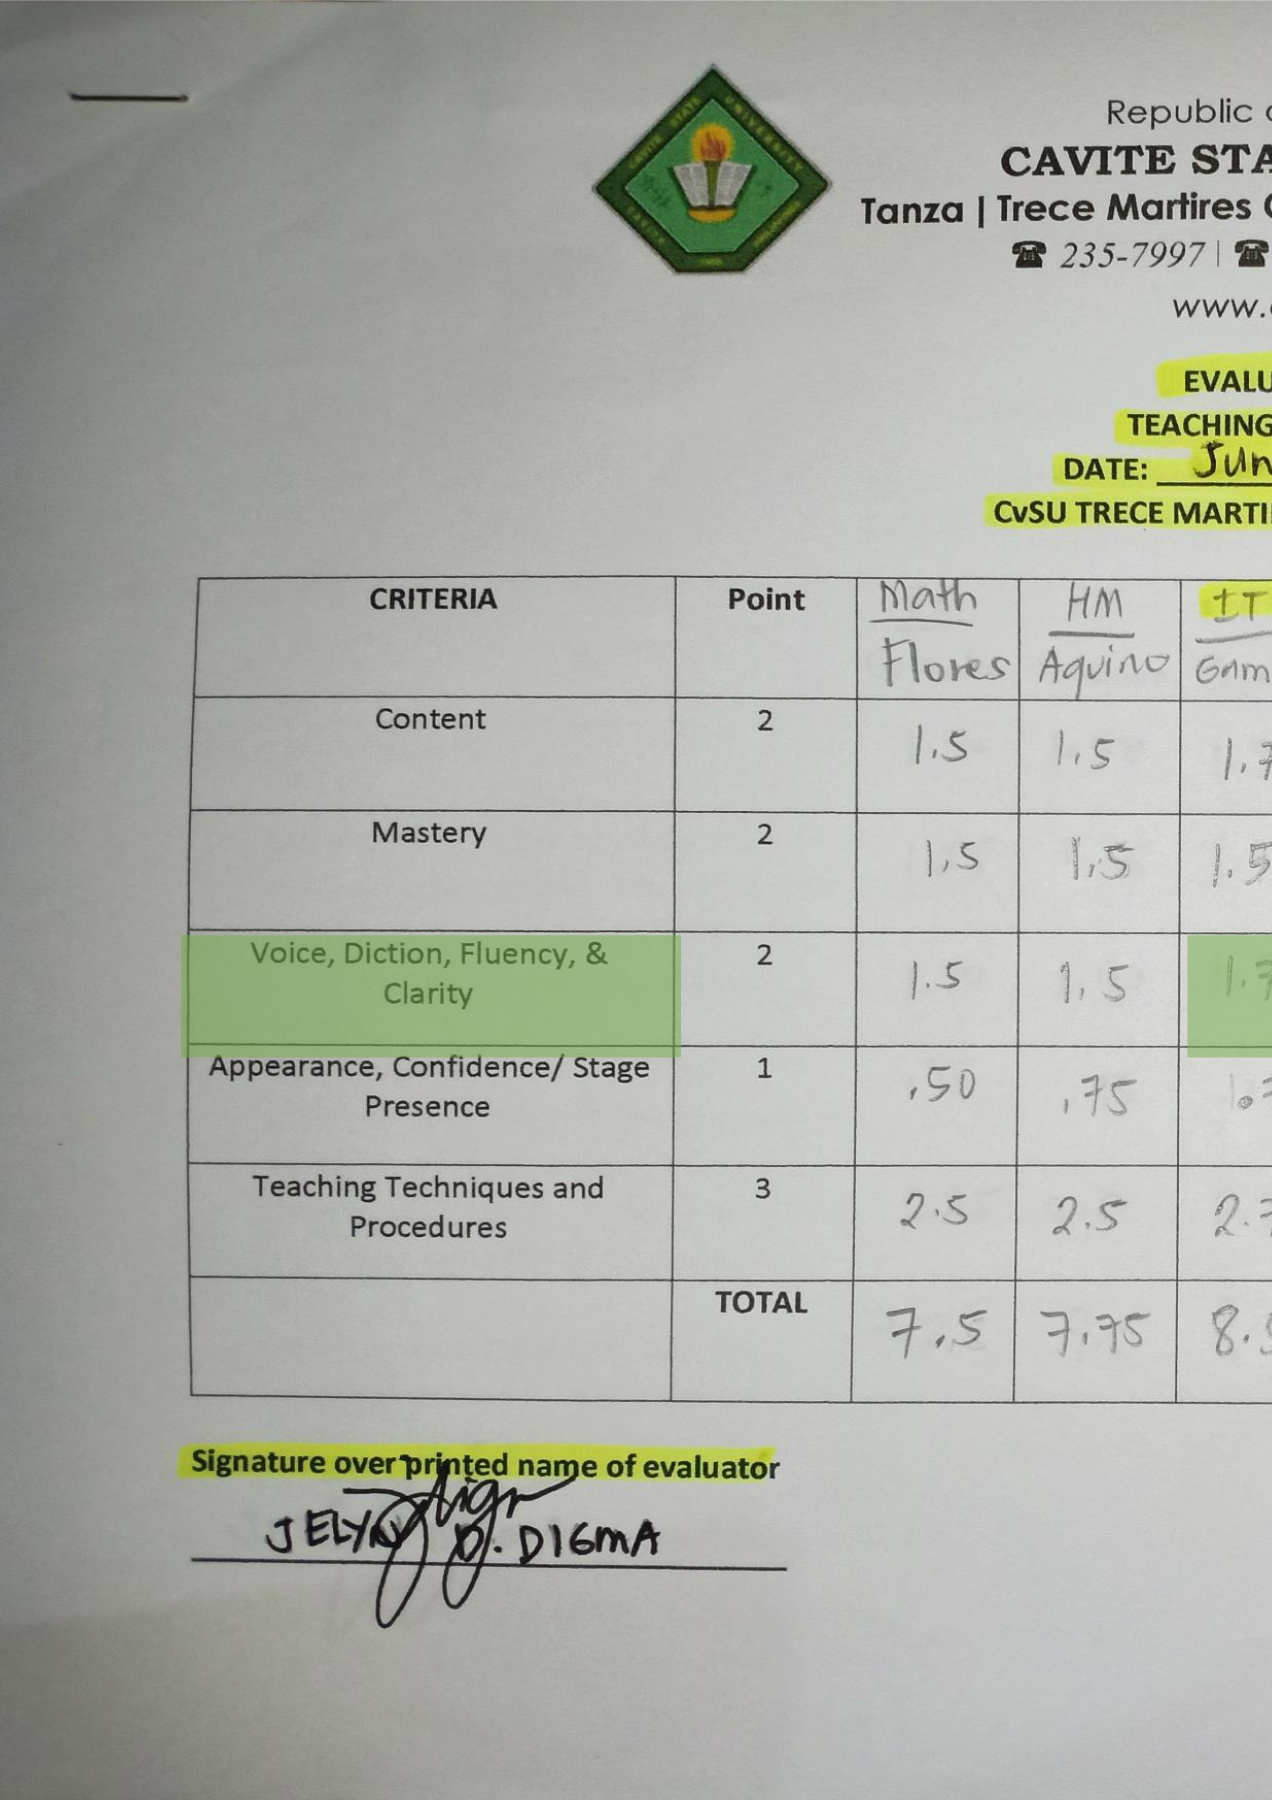 Republic
CAVITE STA
Tanza | Trece Martires
☎ 235-7997 | ☎
www.
EVALU
TEACHING
DATE: Jun
CvSU TRECE MARTI
CRITERIA Point Math HM IT
Flores Aquino Gam
Content 2 1.5 1.5 1.7
Mastery 2 1.5 1.5 1.5
Voice, Diction, Fluency, & 2 1.5 1.5 1.7
Clarity
Appearance, Confidence/ Stage 1 .50 .75
Presence
Teaching Techniques and 3 2.5 2.5 2.7
Procedures
TOTAL 7.5 7.75 8.
Signature over printed name of evaluator
JELYN D. DIGMA